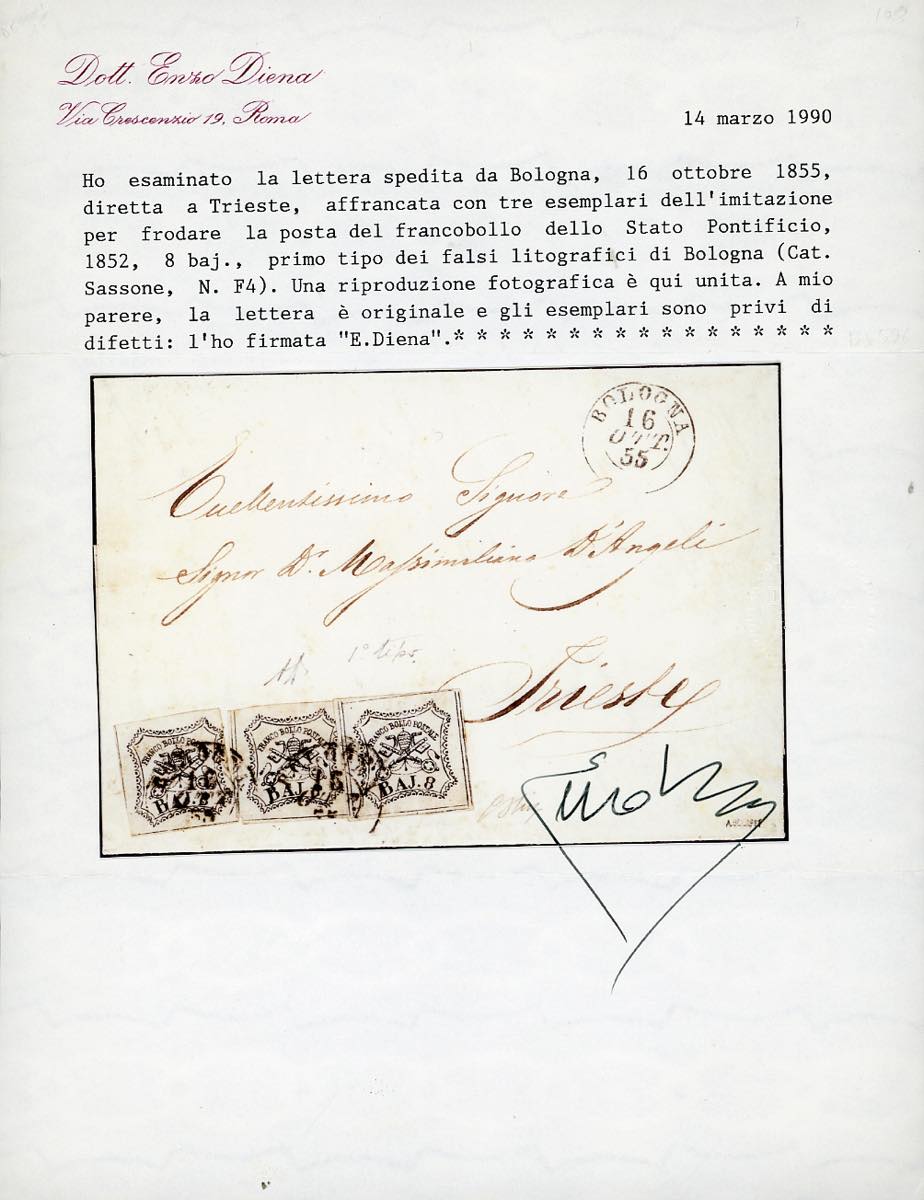 Dott. Enzo Diena
Via Crescenzio 19, Roma
14 marzo 1990
Ho esaminato la lettera spedita da Bologna, 16 ottobre 1855,
diretta a Trieste, affrancata con tre esemplari dell'imitazione
per frodare la posta del francobollo dello Stato Pontificio,
1852, 8 baj., primo tipo dei falsi litografici di Bologna (Cat.
Sassone, N. F4). Una riproduzione fotografica è qui unita. A mio
parere, la lettera è originale e gli esemplari sono privi di
difetti: l'ho firmata "E.Diena".* * * * * * * * * * * * * * * * *
BOLOGNA
16
OTT.
55
Eccellentissimo Signore
Signor Dr. Massimiliano D'Angeli
1° tipo.
Trieste
FRANCO BOLLO POSTALE
BAJ. 8
FRANCO BOLLO POSTALE
BAJ. 8
FRANCO BOLLO POSTALE
BAJ. 8